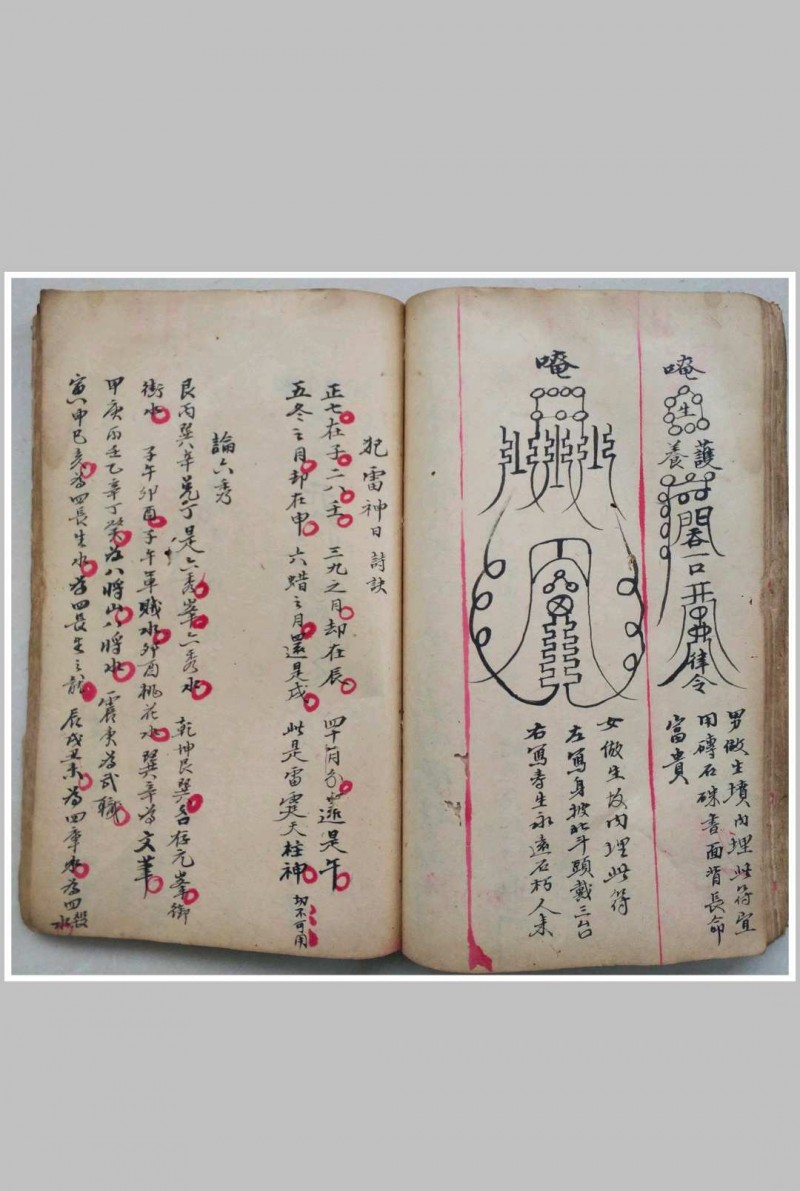 唵
生
護
養
一口
律令
男做生墳内埋此符宜
用磚石硃書面背長命
富貴
唵
女做生坟内埋此符
左寫身披北斗頭戴三台
右寫壽生永遠石朽人來
犯雷神日 詩訣
正七在子二八壬 三九之月却在辰 四十月
還是午
五冬之月却在申 六蜡之月還是戌 此是雷霆天柱神 切不可用
論六秀
艮丙巽辛兌丁是六秀峯六秀水 乾坤艮巽名存元峯御
街水 子午卯酉子午軍賊水卯酉桃花水 巽辛為文筆
甲庚丙壬乙辛丁癸為八將山八將水 震庚為武職
寅申巳亥為四長生水為四長生之龍 辰戌丑未為四庫水為四殺
水